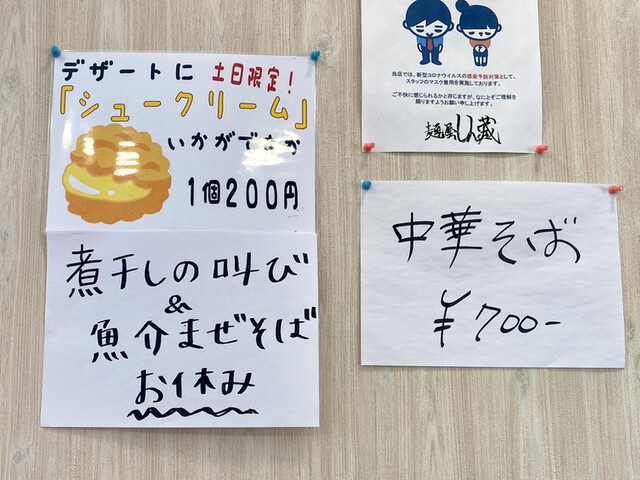 デザートに 土日限定!
「シュークリーム」
いかがですか
1個200円
煮干しの叫び
&
魚介まぜそば
お休み
当店では、新型コロナウイルスの感染予防対策として、
スタッフのマスク着用を実施しております。
ご不快に感じられるかと存じますが、なにとぞご理解を
賜りますようお願い申し上げます。
麺屋しん蔵
中華そば
¥700-